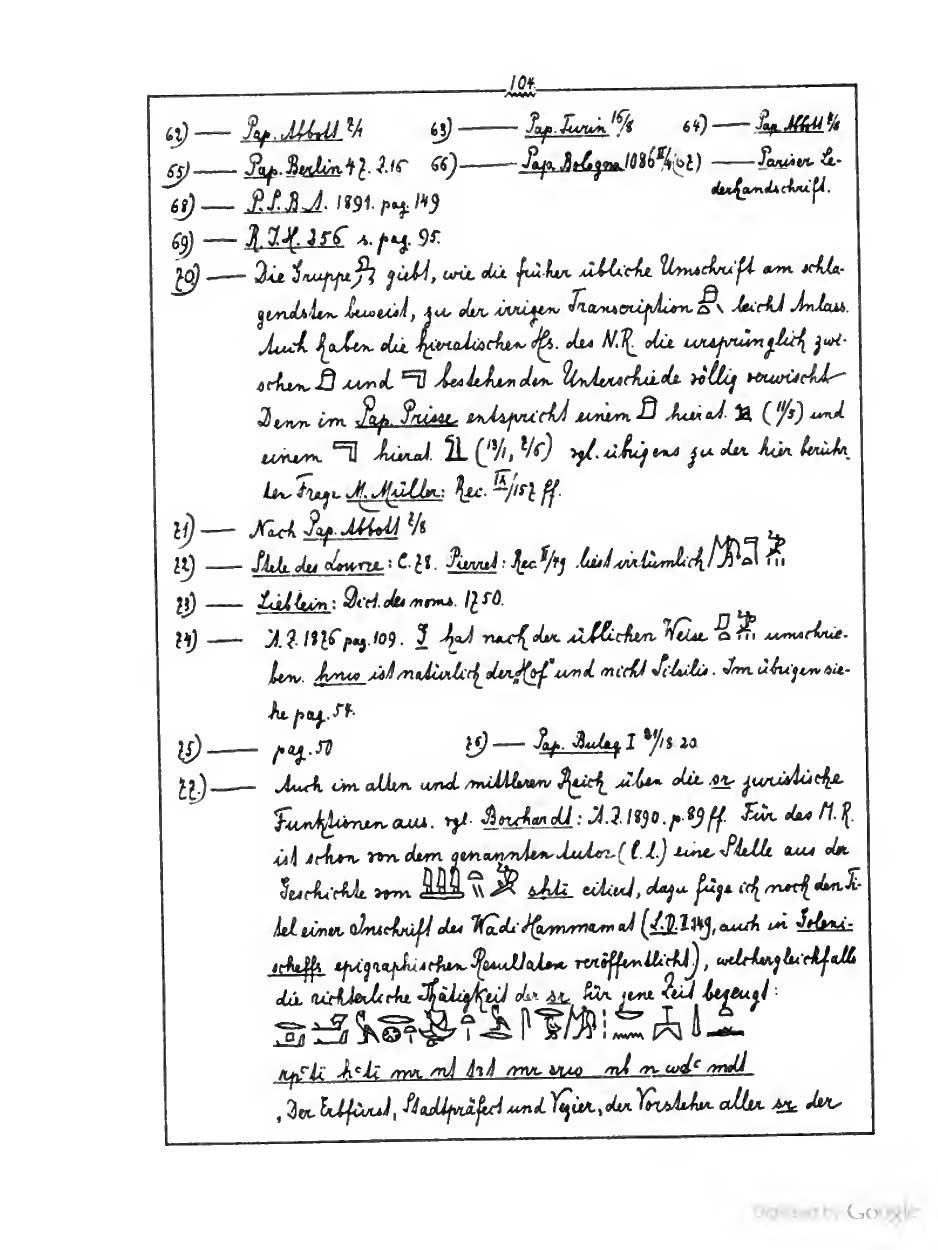 104.
62) — Pap. Abbott 2/1 63) — Pap. Turin 16/8 64) — Pap. Abbott
65) — Pap. Berlin 47. 2.16 66) — Pap. Bologna 1086 — Pariser Le-
derhandschrift.
68) — P.S.B.A. 1891. pag. 149
69) — R.I.H. 256 s. pag. 95.
70) — Die Gruppe giebt, wie die früher übliche Umschrift am schla-
gendsten beweist, zu der irrigen Transcription leicht Anlass.
Auch haben die hieratischen Hs. des N.R. die ursprünglich zwi-
schen und bestehenden Unterschiede völlig verwischt
Denn im Pap. Prisse entspricht einem hierat. (11/5) und
einem hierat. (13/1, 2/6) vgl. übrigens zu der hier berühr-
ten Frage M. Müller: Rec. IX/157 ff.
71) — Nach Pap. Abbott 2/8
72) — Stele des Louvre: C. 78. Pierret: Rec II/49 liest irrtümlich
73) — Lieblein: Dict. des noms. 1750.
74) — Ä.Z. 1876 pag. 109. hat nach der üblichen Weise umschrie-
ben. hnw ist natürlich der „Hof“ und nicht Silsilis. Im übrigen sie-
he pag. 54.
75) — pag. 50 76) — Pap. Bulaq I 18.20.
77.) — Auch im alten und mittleren Reich üben die sr juristische
Funktionen aus. vgl. Borchardt: Ä.Z. 1890. p. 89 ff. Für das M.R.
ist schon von dem genannten Autor (l.l.) eine Stelle aus der
Geschichte vom sḫti citiert, dazu füge ich noch den Ti-
tel einer Inschrift des Wadi Hammamat (L.D. II 149, auch in Goleni-
scheffs epigraphischen Resultaten veröffentlicht), welcher gleichfalls
die richterliche Thätigkeit der sr für jene Zeit bezeugt:
rpꜥti ḥꜥti mr nt ṯꜣt mr srw nb n wdꜥ mdt
„Der Erbfürst, Stadtpräfect und Vezier, der Vorsteher aller sr der
Digitized by Google